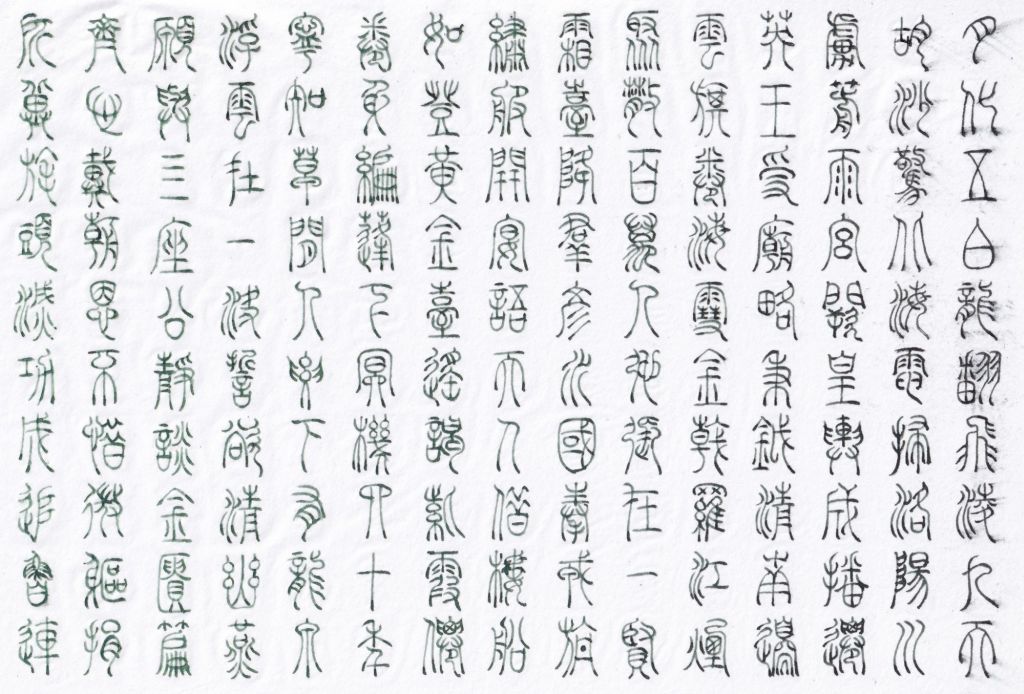 月化五白龍翻飛凌九天
胡沙驚北海電掃洛陽川
虜箭雨宮闕皇輿成播遷
英王受廟略秉鉞清南邊
雲旗卷海雪金戟羅江煙
聚散百萬人弛張在一賢
霜臺降群彥水國奉戎旃
繡服開宴語天人借樓船
如登黃金臺遙謁紫霞仙
卷身編蓬下冥機四十年
寧知草間人腰下有龍泉
浮雲在一決誓欲清幽燕
願與四座公靜談金匱篇
齊心戴朝恩不惜微軀捐
所冀旄頭滅功成追魯連